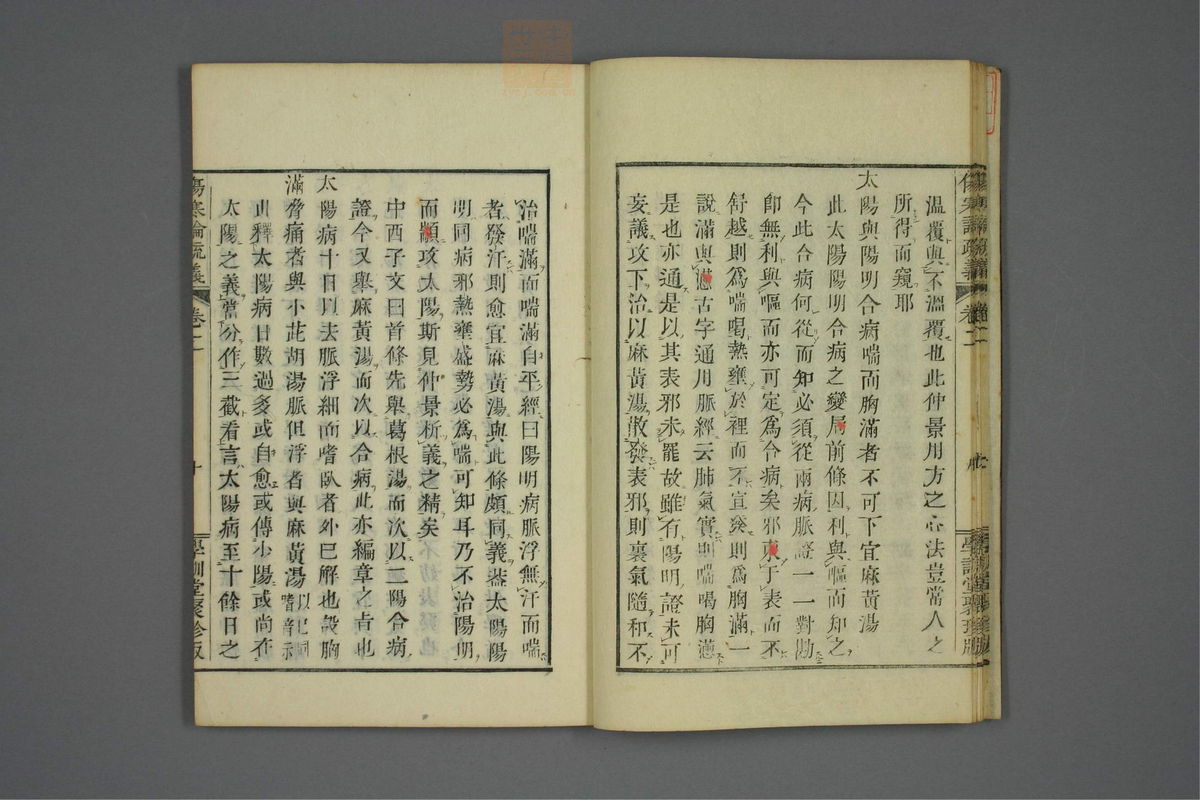 溫覆與不溫覆也此仲景用方之心法豈常人之
所得而窺耶
太陽與陽明合病喘而胸滿者不可下宜麻黃湯
此太陽陽明合病之變局前條因利與嘔而知之
今此合病何從而知必須從兩病脈證一一對勘
卽無利與嘔而亦可定爲合病矣邪東于表而不
舒越則爲喘喝熱壅於裡而不宣發則爲胸滿一
說滿與懣古字通用脈經云肺氣實則喘喝胸懣
是也亦通是以其表邪未罷故雖有陽明證未可
妄議攻下治以麻黃湯散發表邪則裏氣隨和不
治喘滿而喘滿自平經曰陽明病脈浮無汗而喘
者發汗則愈宜麻黃湯與此條頗同義蓋太陽陽
明同病邪熱壅盛勢必爲喘可知耳乃不治陽明
而顓攻太陽斯見仲景析義之精矣
中西子文曰首條先舉葛根湯而次以二陽合病
證今又舉麻黃湯而次以合病此亦編章之旨也
太陽病十日以去脈浮細而嗜臥者外已解也設胸
滿脅痛者與小茈胡湯脈但浮者與麻黃湯
此釋太陽病日數過多或自愈或傳少陽或尚在
太陽之義當分作三截看言太陽病至十餘日之
傷寒論疏義
卷二
十
學訓堂聚珍版